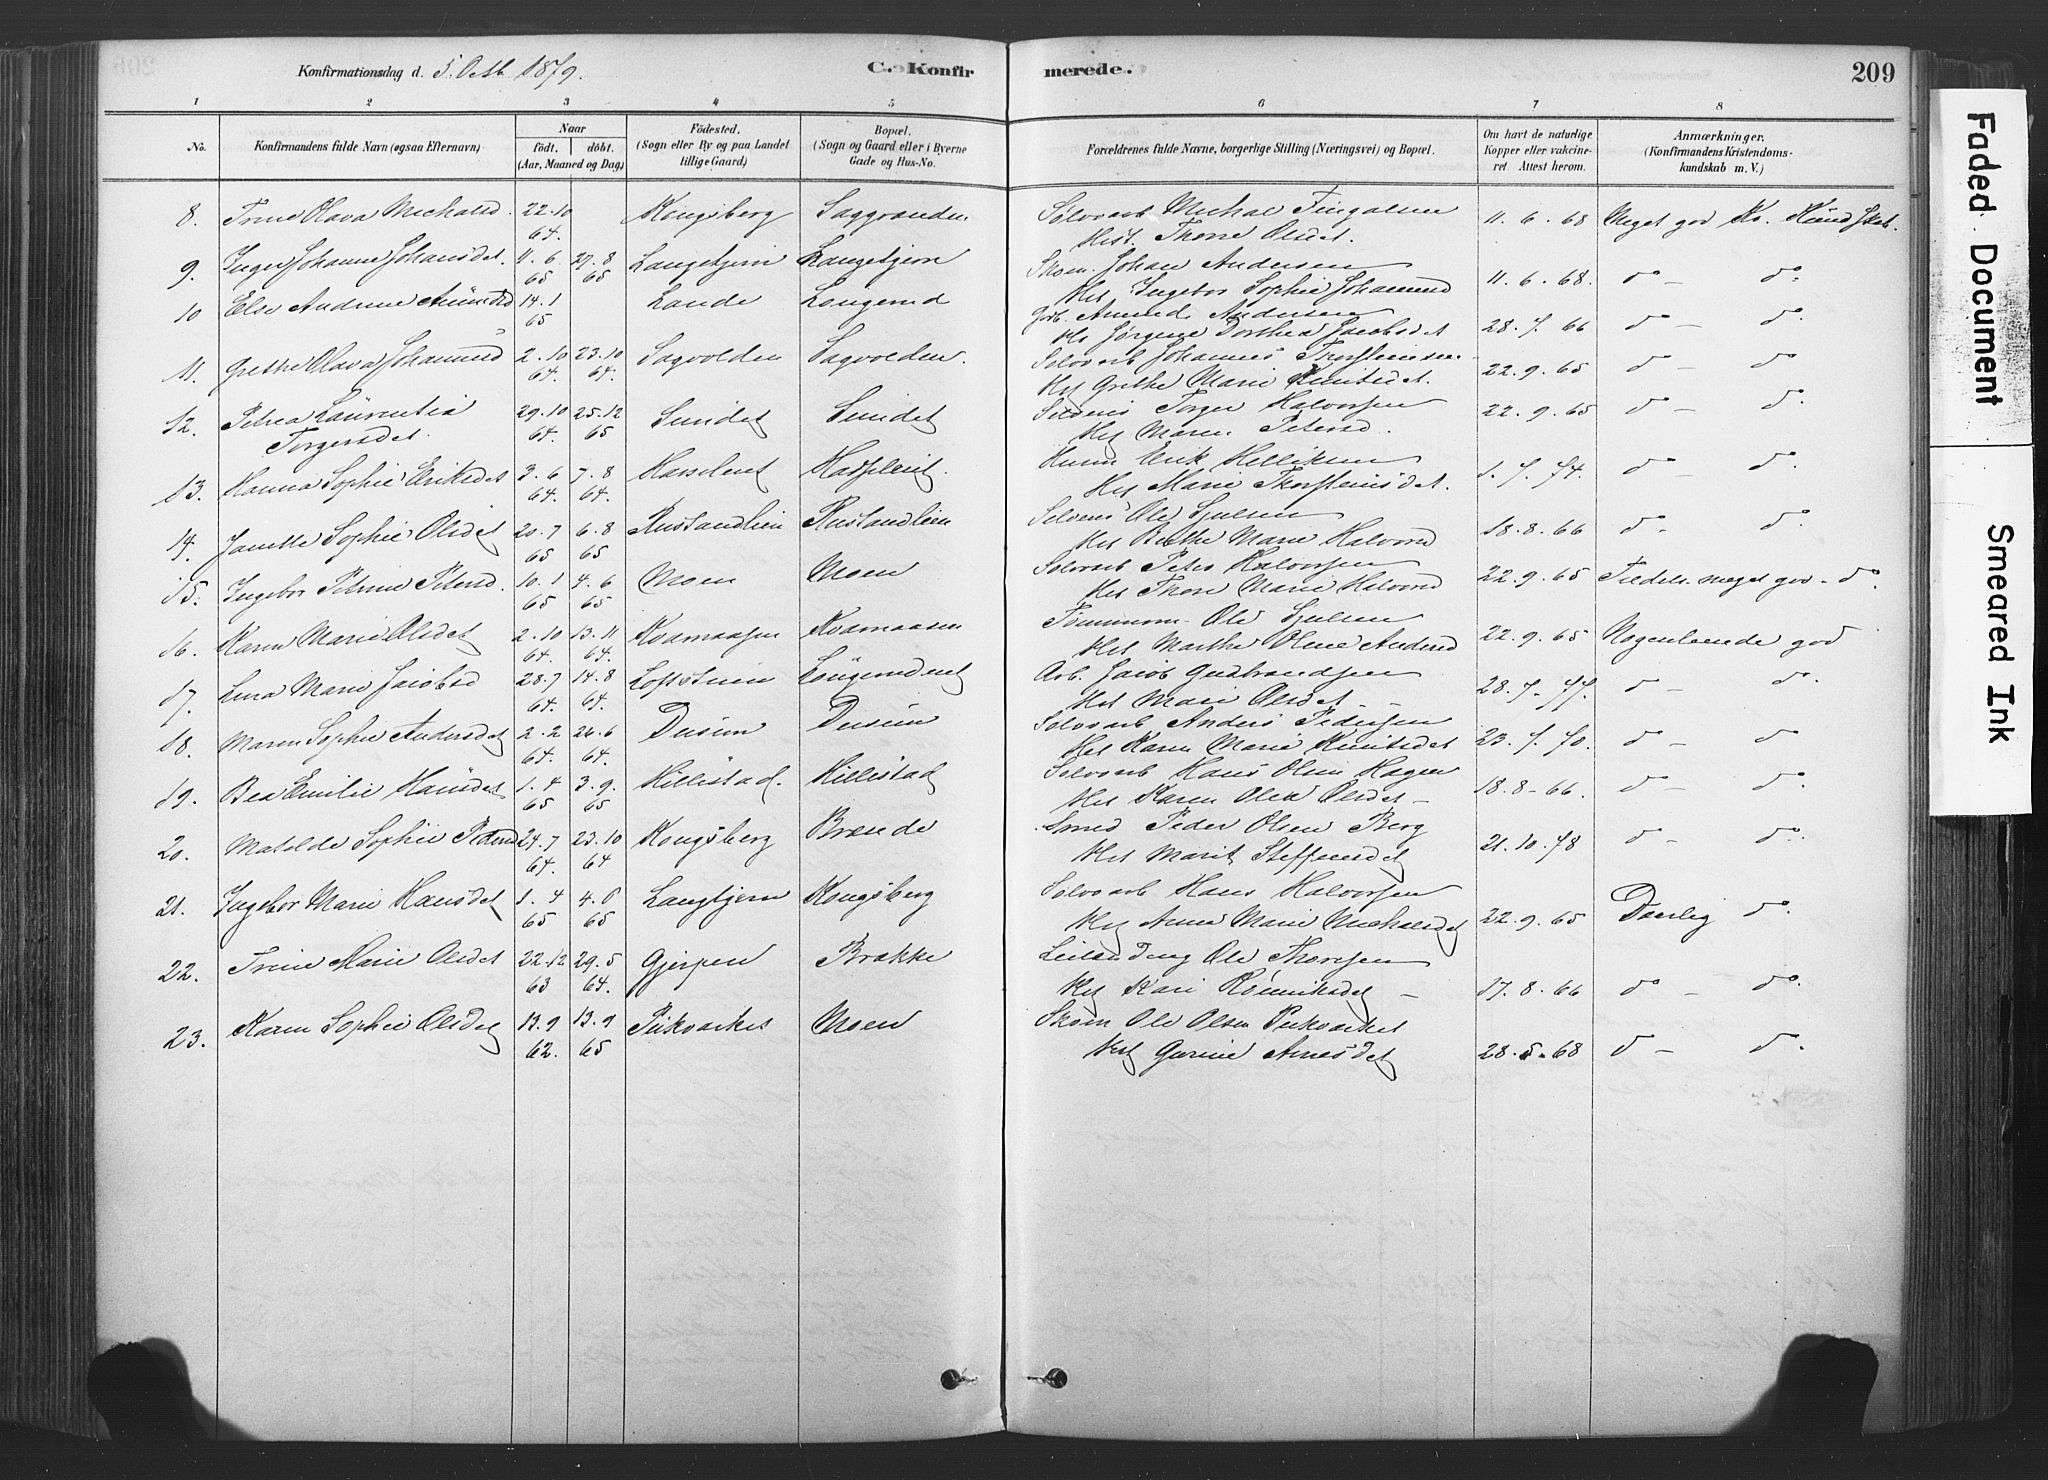 Konfirmationsdag d. 5. Octb. 1879.
C. Konfirmerede.
209
1 2 3 4 5 6 7 8
No.
Konfirmandens fulde Navn (ogsaa Efternavn)
Naar
födt. döbt.
(Aar, Maaned og Dag)
Födested.
(Sogn eller By og paa Landet
tillige Gaard)
Bopæl.
(Sogn og Gaard eller i Byerne
Gade og Hus-No.
Forældrenes fulde Navne, borgerlige Stilling (Næringsvei) og Bopæl.
Om havt de naturlige
Kopper eller vakcine-
ret. Attest herom.
Anmærkninger.
(Konfirmandens Kristendoms-
kundskab m. V.)
8. Trine Olava Michalsd. 22.10 64. Kongsberg Saggranden
Sølvarb Michal Fingalsen
Hust. Thore Olsdet. 11. 6. 68 Meget god Kr. Kundskab.
9. Inger Johanne Johansdet. 4. 6 65 29. 8 65 Langetjern Langetjern
Skom. Johan Andersen
Hst Ingebor Sophie Johannesd 11. 6. 68. do — do.
10 Else Andrine Amundsd 14. 1 65 Lande
Amund Andersen
Hs Jørgine Dorthea Jacobsdet 28. 7. 66 do — do.
11. Grethe Olava Johannesd 2. 10 64. 23. 10 64. Sagvolden Sagvolden.
Sølvarb Johannes Thorsteinsen
Hst Grethe Marie Knutsdet. 22. 9. 65 do — do.
12. Petrea Laurentia
Torgersdet. 29. 10 64. 25. 12 65 Sundet Sundet
Torger Halvorsen
Hst Maren Petersd. 22. 9. 65 do — do.
13. Hanna Sophie Eriksdet 3. 6 64. 7. 8 64.
Husm Erik Helliksen
Hst Marie Thorsteinsdet. 1. 7. 74. do — do.
14. Janette Sophie Olsdet 20. 7 65 6. 8 65 Rustandlien Rustandlien
Ole Sjulsen
Hst Berthe Marie Halvorsd 18. 8. 66 do - do.
15. Ingebor Petrine Petersd. 10. 1 65 4. 6 65 Moen Moen
Sølvarb Peter Halvorsen
Hst Thore Marie Halvorsd 22. 9. 65 Tildels meget god - do
16. Karen Marie Olsdet 2. 10 64. 13. 11 64. Kvamaasen Kvamaasen
Tømmerm. Ole Sjulsen
Hst Marthe Oline Andersd 22. 9. 65 Nogenlunde god
17. Lina Marie Jacobsd 28. 7 64. 14. 8 64.
Arb. Jacob Gudbrandsen
Hst Mari Olsdet - 28. 7. 77. do — do.
18. Maren Sophie Andersdet 2. 2 64. 26. 6 64. Dusun Dusun
Sølvarb Anders Pedersen
Hst Karen Marie Knutsdet 23. 7. 70. do — do.
19. Bea Emilie Hansdet 1. 4 65 3. 9. 65 Hillestad. Hillestad
Sølvarb Hans Olsen Hagen
Hst Karen Olea Olsdet — 18. 8 - 66. do — do.
20. Matolde Sophie Pedersd 24. 7 64. 23. 10 64 Kongsberg Brænde
Smed Peder Olsen Berg
Hst Marit Steffensdet 21. 10. 78 do — do.
21. Ingebor Marie Hansdet 1. 4 65 4. 6 65 Langtjern Kongsberg
Sølvarb Hans Halvorsen
Hst Anne Marie Michalsdet 22. 9. 65 Daarlig do.
22. Trine Marie Olsdet 22. 12 63 29. 5 64. Gjerpen Brække
Leilænding Ole Thorsen
Hst Kari — 17. 8. 66 do — do.
23. Karen Sophie Olsdet 13. 9 62. 13. 9 65 Pukverket Moen
Skom Ole Olsen Pukverket
Hst Gurine Arnesdet 28. 5. 68 do — do.
Faded Document
Smeared Ink